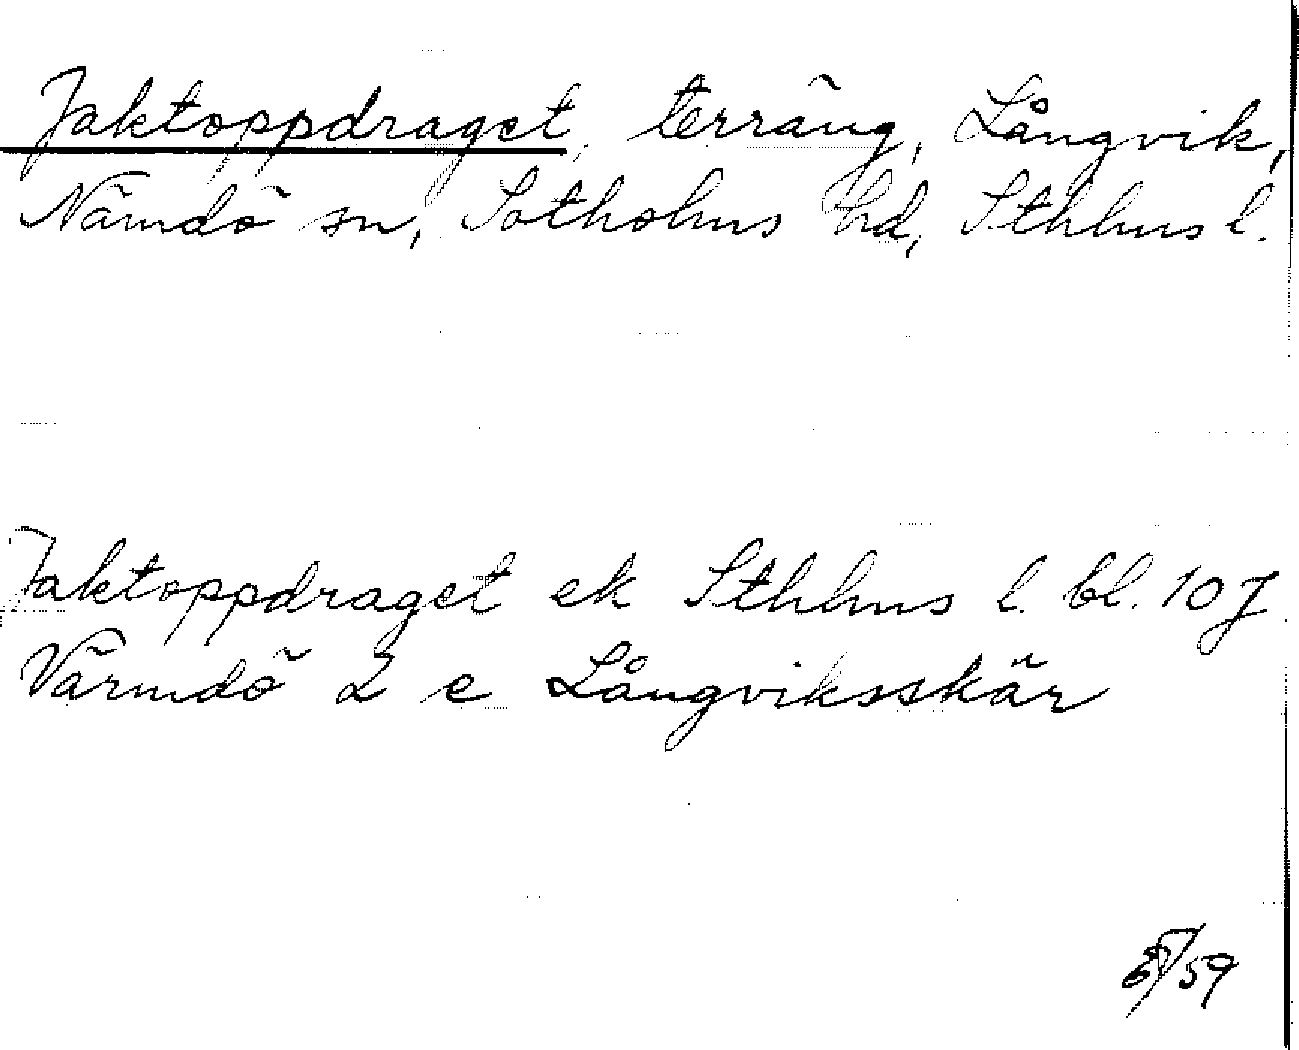 Jaktoppdraget, terräng, Långvik,
Nämdö sn, Sotholms hd, Sthlms l.
Jaktoppdraget ek Sthlms l. bl. 107
Värmdö 2 e Långviksskär
/59